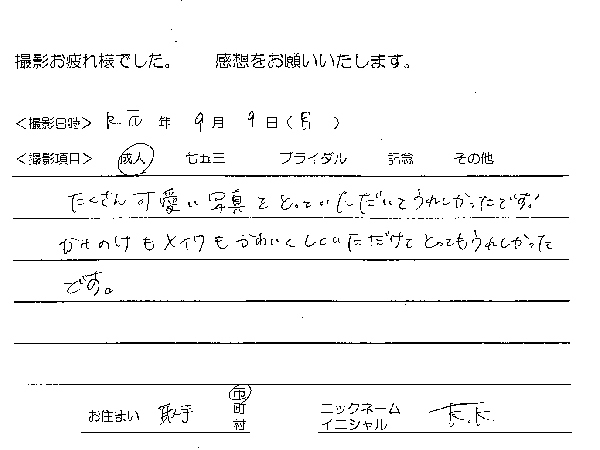 撮影お疲れ様でした。 感想をお願いいたします。
<撮影日時> R元 年 9月 9日(月)
<撮影項目> 成人 七五三 ブライダル 記念 その他
たくさん可愛い写真をとっていただいてうれしかったです!
かみのけもメイクもかわいくしていただけてとってもうれしかった
です。
お住まい 取手 市町村 ニックネーム イニシャル K.K.